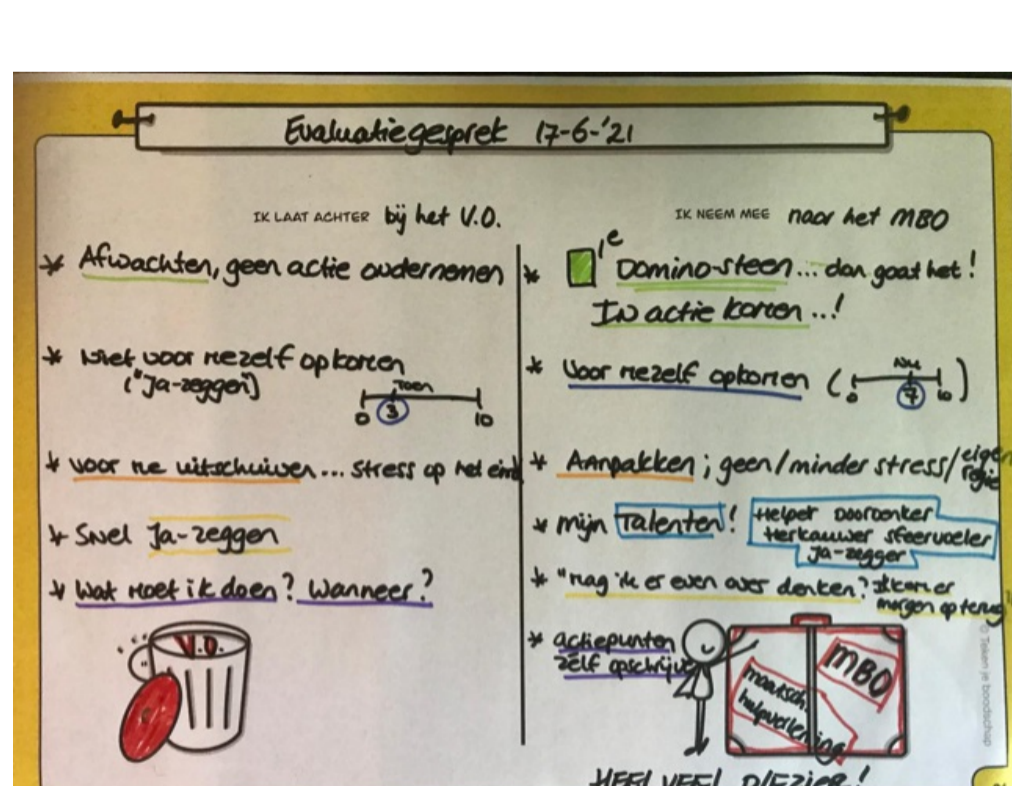 Evaluatiegesprek 17-6-'21
IK LAAT ACHTER bij het V.O.
* Afwachten, geen actie oudernemen
* Niet voor mezelf opkomen
("Ja-zeggen)
Toen
0 3 10
* voor me uitschuiven... stress op het eind
* Snel Ja-zeggen
* Wat moet ik doen? Wanneer?
V.O.
IK NEEM MEE naar het MBO
* 1e Domino-steen... dan gaat het!
In actie komen...!
* Voor mezelf opkomen ( )
Nu
0 7 10
* Aanpakken; geen/minder stress/eigen
regie
* mijn Talenten! Helper Doordenker
Herkauwer sfeervoeler
Ja-zegger
* "mag ik er even over denken? Ik kom er
morgen op terug"
* actiepunten
zelf opschrijven
MBO
maatsch.
hulpverlening
HEEL VEEL PLEZIER!
© Teken je boodschap